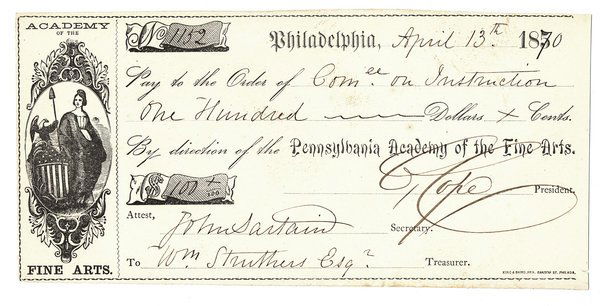 ACADEMY
OF THE
FINE ARTS.
No 1152
Philadelphia, April 13.th 1870
Pay to the Order of Com.ee on Instruction
One Hundred Dollars x Cents.
By direction of the Pennsylvania Academy of the Fine Arts.
100 x/100
C, Cope President.
Attest, John Sartain Secretary.
To Wm Struthers Esq.r Treasurer.